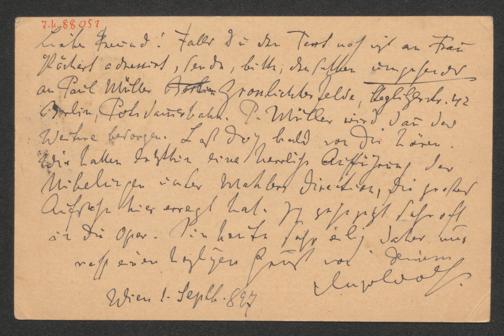 Lieber Freund! Falls Du den Text noch nicht an Frau
Köchert adressirt, sende, bitte, denselben umgehendst
an Paul Müller Berlin Grosslichterfelde, Steglitzerstr. 42
Berlin, Potsdamerbahn. P. Müller wird dann das
Weitere besorgen. Lass Dich bald von Dir hören.
Wir hatten letzthin eine herrliche Aufführung der
Nibelungen unter Mahlers Direction, die grosses
Aufsehn hier erregt hat. Ich sehr oft
in die Oper. Bin heute sehr eilig daher nur
noch einen herzlichen Gruss von Deinem
Hugo Wolf.
Wien 1. Septb. 897